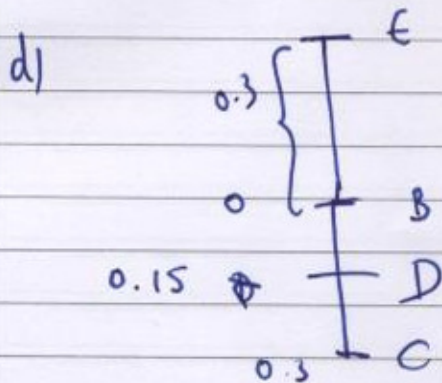 d)
E
0.3
0 B
0.15 D
0.3 C